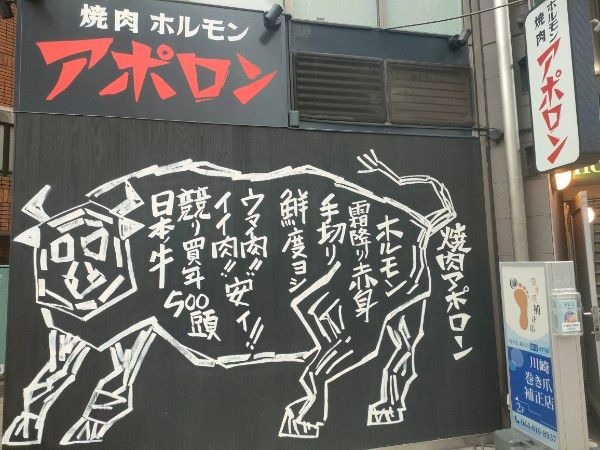 焼肉 ホルモン
アポロン
焼肉
ホルモン
アポロン
焼肉アポロン
ホルモン
霜降り赤身
手切り
鮮度ヨシ
ウマイ肉!!安イ!!
イイ肉!!
競り買年500頭
日本牛
巻き爪補正店
川崎
巻き爪
補正店
2F